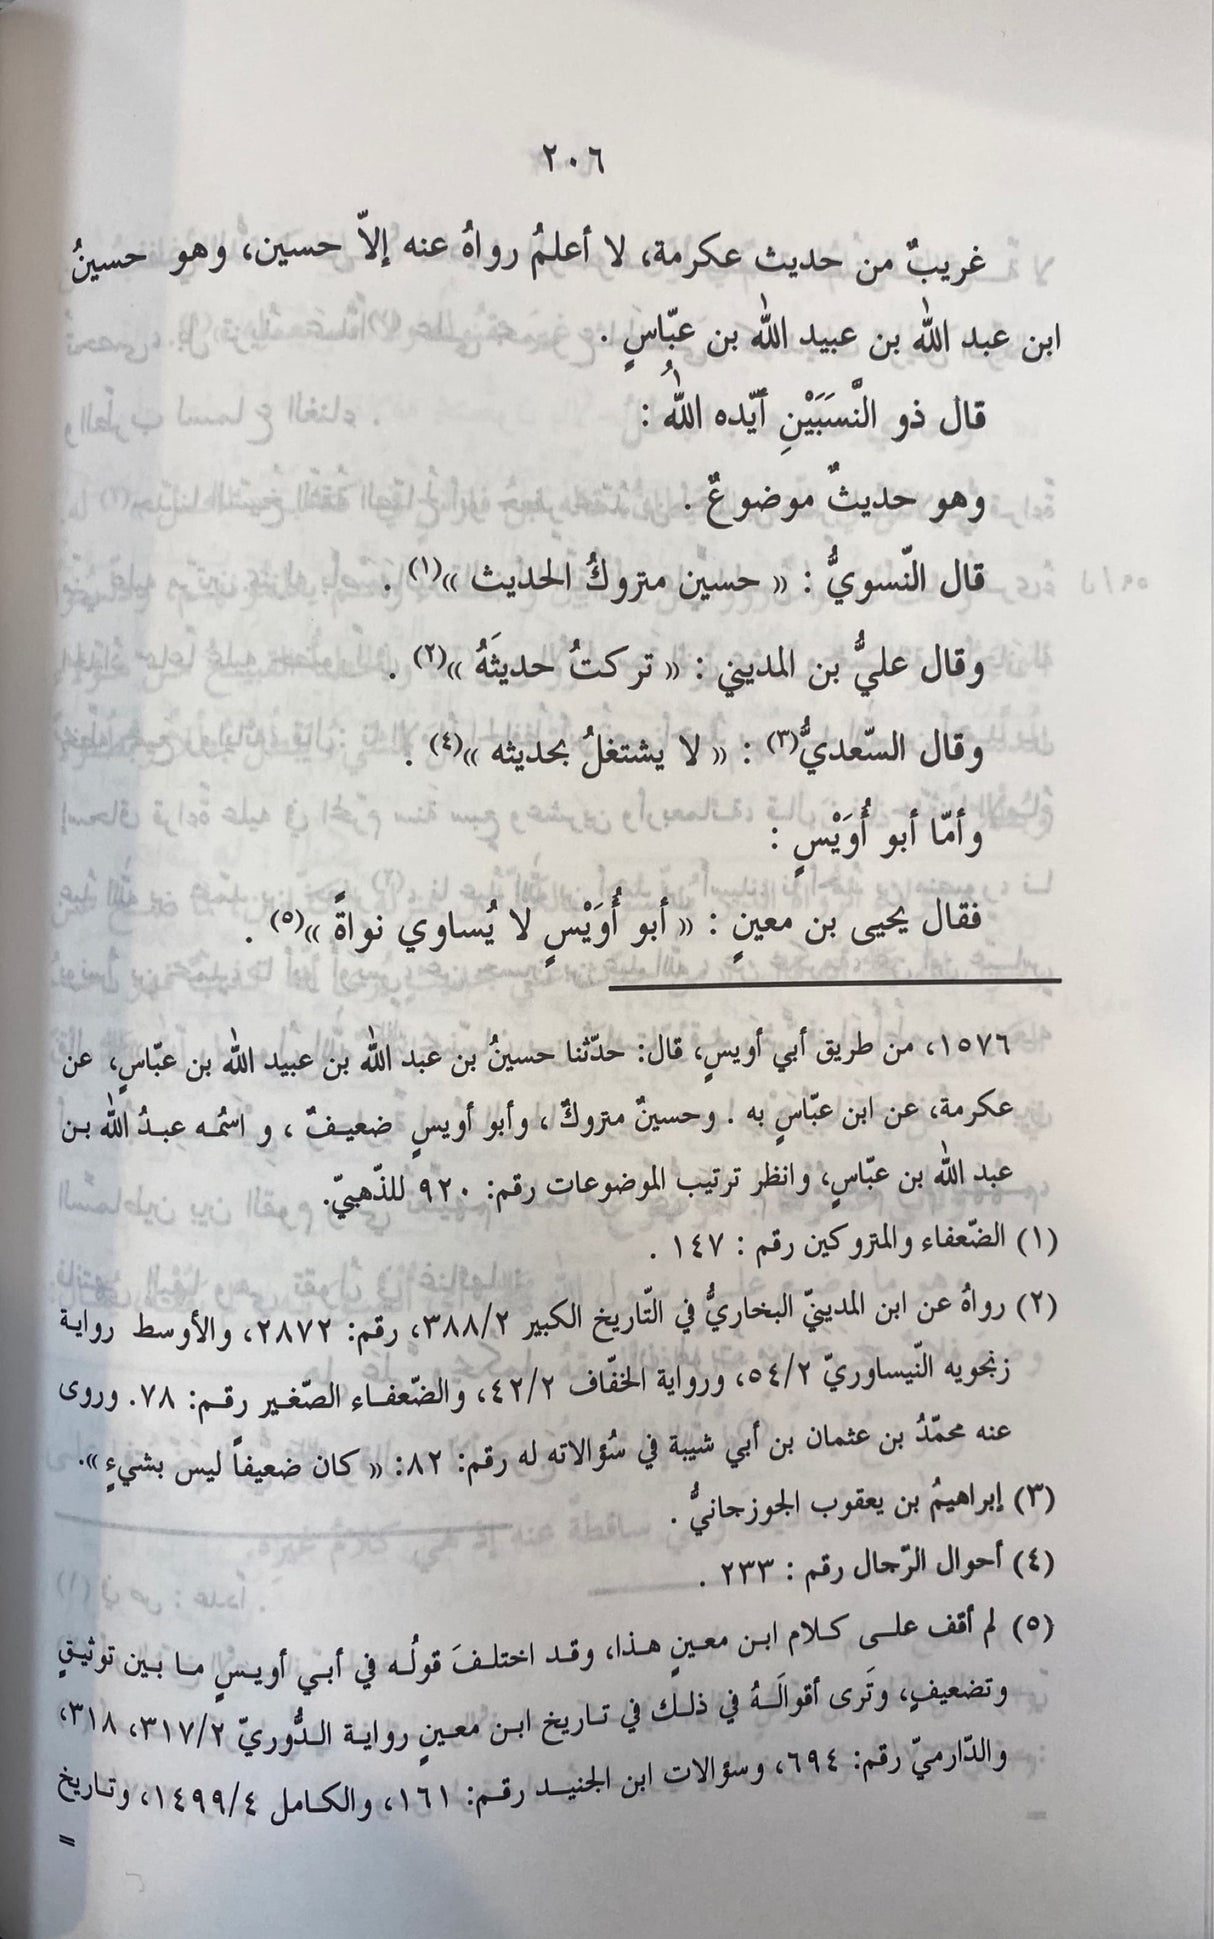 ٢٠٦
غريبٌ من حديث عكرمة، لا أعلمُ رواهُ عنه إلاّ حسين، وهو حسينُ
ابن عبد الله بن عبيد الله بن عبّاسٍ .
قال ذو النَّسَبَيْنِ أيّده اللهُ :
وهو حديثٌ موضوعٌ .
قال النّسويُّ : « حسين متروكُ الحديث »(١) .
وقال عليُّ بن المديني : « تركتُ حديثَهُ »(٢) .
وقال السّعديُّ(٣) : « لا يشتغلُ بحديثه »(٤) .
وأمّا أبو أُوَيْسٍ :
فقال يحيى بن معينٍ : « أبو أُوَيْسٍ لا يُساوي نواةً »(٥) .
١٥٧٦، من طريق أبي أويسٍ، قال: حدّثنا حسينُ بن عبد الله بن عبيد الله بن عبّاسٍ، عن
عكرمة، عن ابن عبّاسٍ به . وحسينٌ متروكٌ، وأبو أويسٍ ضعيفٌ، و اسمُه عبدُ الله بن
عبد الله بن عبّاسٍ، وانظر ترتيب الموضوعات رقم: ٩٢٠ للذّهبيّ.
(١) الضّعفاء والمتروكين رقم : ١٤٧ .
(٢) رواهُ عن ابن المدينيّ البخاريُّ في التّاريخ الكبير ٣٨٨/٢، رقم: ٢٨٧٢، والأوسط رواية
زنجويه النّيساوريّ ٥٤/٢، ورواية الخفّاف ٤٢/٢، والضّعفاء الصّغير رقم: ٧٨. وروى
عنه محمّدُ بن عثمان بن أبي شيبة في سُؤالاته له رقم: ٨٢: « كان ضعيفاً ليس بشيءٍ ».
(٣) إبراهيمُ بن يعقوب الجوزجانيُّ .
(٤) أحوال الرّجال رقم : ٢٣٣ .
(٥) لم أقف على كلام ابن معينٍ هذا، وقد اختلفَ قولُه في أبي أويسٍ ما بين توثيقٍ
وتضعيفٍ، وتَرى أقوالَهُ في ذلك في تاريخ ابن معينٍ رواية الدُّوريّ ٣١٧/٢، ٣١٨،
والدّارميّ رقم: ٦٩٤، وسؤالات ابن الجنيد رقم: ١٦١، والكامل ١٤٩٩/٤، وتاريخ
=